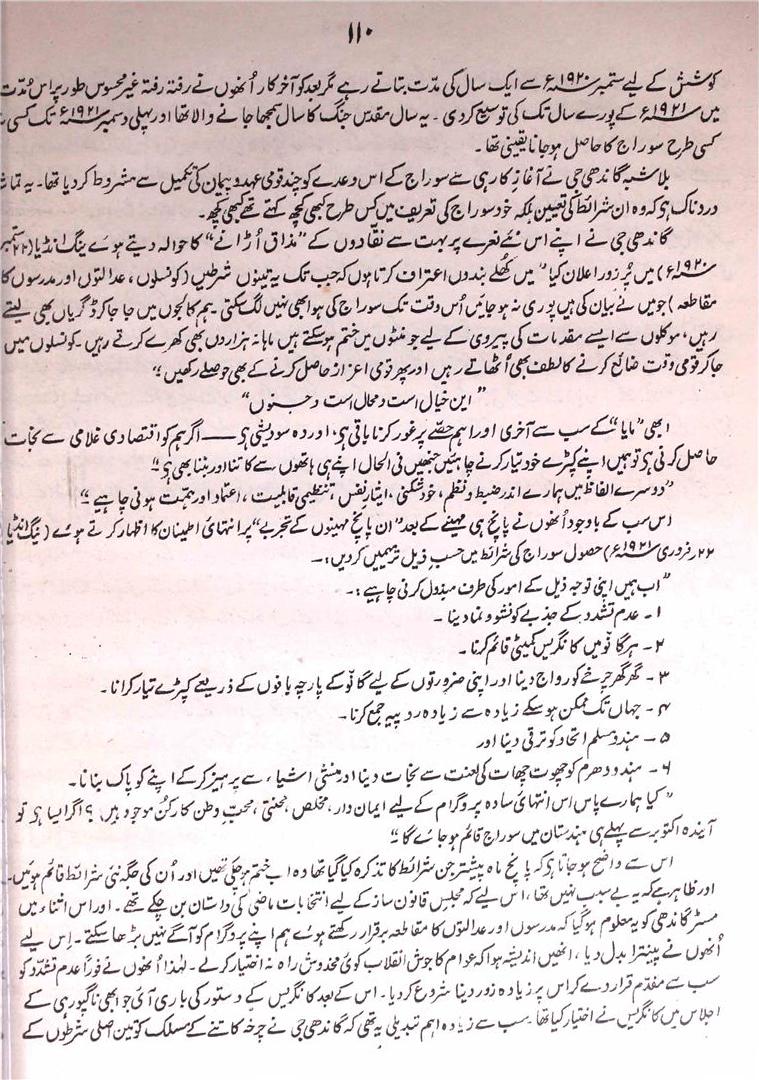 ۱۱۰
کوشش کے لیے ستمبر ۱۹۲۰ء سے ایک سال کی مدّت بتاتے رہے مگر بعد کو آخر کار اُنھوں نے رفتہ رفتہ غیر محسوس طور پر اس مُدّت
میں ۱۹۲۱ء کے پورے سال تک کی توسیع کردی ۔ یہ سال مقدس جنگ کا سال سمجھا جانے والا تھا اور پہلی دسمبر ۱۹۲۱ء تک کسی نہ
کسی طرح سوراج کا حاصل ہوجانا یقینی تھا ۔
بلاشبہ گاندھی جی نے آغازِ کار ہی سے سوراج کے اس وعدے کو چند قومی عہد و پیمان کی تکمیل سے مشروط کردیا تھا ۔ یہ تماشہ
دردناک ہی کہ وہ ان شرائط کی تعیین بلکہ خود سوراج کی تعریف میں کس طرح کبھی کچھ کہتے تھے کبھی کچھ ۔
گاندھی جی نے اپنے اس نئے نعرے پر بہت سے نقّادوں کے ”مذاق اُڑانے“ کا حوالہ دیتے ہوے ینگ انڈیا (۲۲ ستمبر
۱۹۲۰ء) میں پُرزور اعلان کیا ” میں کھُلے بندوں اعتراف کرتا ہوں کہ جب تک یہ تینوں شرطیں (کونسلوں، عدالتوں اور مدرسوں کا
مقاطعہ) جو میں نے بیان کی ہیں پوری نہ ہوجائیں اُس وقت تک سوراج کی ہوا بھی نہیں لگ سکتی ۔ ہم کالجوں میں جا جا کر ڈگریاں بھی لیتے
رہیں، موکلوں سے ایسے مقدمات کی پیروی کے لیے جو منٹوں میں ختم ہوسکتے ہیں ماہانہ ہزاروں بھی کھرے کرتے رہیں ۔ کونسلوں میں
جاکر قومی وقت ضائع کرنے کا لطف بھی اُٹھاتے رہیں اور پھر قومی اعزاز حاصل کرنے کے بھی حوصلے رکھیں ؛“
”ایں خیال است و محال است و جنوں“
ابھی ”مایا“ کے سب سے آخری اور اہم حصّے پر غور کرنا باقی ہی، اور وہ سودیشی ہی —— اگر ہم کو اقتصادی غلامی سے نجات
حاصل کرنی ہی تو ہمیں اپنے کپڑے خود تیار کرنے چاہئیں جنھیں فی الحال اپنے ہی ہاتھوں سے کاتنا اور بننا بھی ہی“
”دوسرے الفاظ میں ہمارے اندر ضبط و نظم، خودشکنی، ایثارِ نفس، تنظیمی قابلیت، اعتماد اور ہمت ہونی چاہیے ۔“
اس سب کے باوجود اُنھوں نے پانچ ہی مہینے کے بعد ”ان پانچ مہینوں کے تجربے“ پر انتہائی اطمینان کا اظہار کرتے ہوے (ینگ انڈیا
۲۲ر فروری ۱۹۲۱ء) حصول سوراج کی شرائط میں حسب ذیل ترمیمیں کردیں :۔
”اب ہمیں اپنی توجہ ذیل کے امور کی طرف مبذول کرنی چاہیے :۔
۱۔ عدم تشدد کے جذبے کو نشو و نما دینا ۔
۲۔ ہر گانو میں کانگریس کمیٹی قائم کرنا ۔
۳۔ گھر گھر چرخے کو رواج دینا اور اپنی ضرورتوں کے لیے گانو کے پارچہ بافوں کے ذریعے کپڑے تیار کرانا ۔
۴۔ جہاں تک ممکن ہوسکے زیادہ سے زیادہ روپیہ جمع کرنا ۔
۵۔ ہندو مسلم اتحاد کو ترقی دینا اور
۶۔ ہندو دھرم کو چھوت چھات کی لعنت سے نجات دینا اور منشّی اشیاء سے پرہیز کرکے اپنے کو پاک بنانا ۔
”کیا ہمارے پاس اس انتہائی سادہ پروگرام کے لیے ایمان دار، مخلص، محنتی، محبِّ وطن کارکن موجود ہیں؟ اگر ایسا ہی تو
آیندہ اکتوبر سے پہلے ہی ہندستان میں سوراج قائم ہوجاے گا ۔“
اس سے واضح ہوجاتا ہی کہ پانچ ماہ پیشتر جن شرائط کا تذکرہ کیا گیا تھا وہ اب ختم ہوچکی تھیں اور اُن کی جگہ نئی شرائط قائم ہوئیں۔
اور ظاہر ہے کہ یہ بے سبب نہیں تھا، اس لیے کہ مجلس قانون ساز کے لیے انتخابات ماضی کی داستان بن چکے تھے ۔ اور اس اثناء میں
مسٹر گاندھی کو یہ معلوم ہوگیا کہ مدرسوں اور عدالتوں کا مقاطعہ برقرار رکھتے ہوے ہم اپنے پروگرام کو آگے نہیں بڑھا سکتے۔ اِس لیے
اُنھوں نے پینترا بدل دیا، انھیں اندیشہ ہوا کہ عوام کا جوش انقلاب کوئی مخدوش راہ نہ اختیار کرلے۔ لہٰذا اُنھوں نے فوراً عدم تشدّد کو
سب سے مقدّم قرار دے کر اس پر زیادہ زور دینا شروع کردیا ۔ اس کے بعد کانگریس کے دستور کی باری آئی جو ابھی ناگپور ہی کے
اجلاس میں کانگریس نے اختیار کیا تھا۔ سب سے زیادہ اہم تبدیلی یہ تھی کہ گاندھی جی نے چرخہ کاتنے کے مسلک کو تین اصلی شرطوں کے